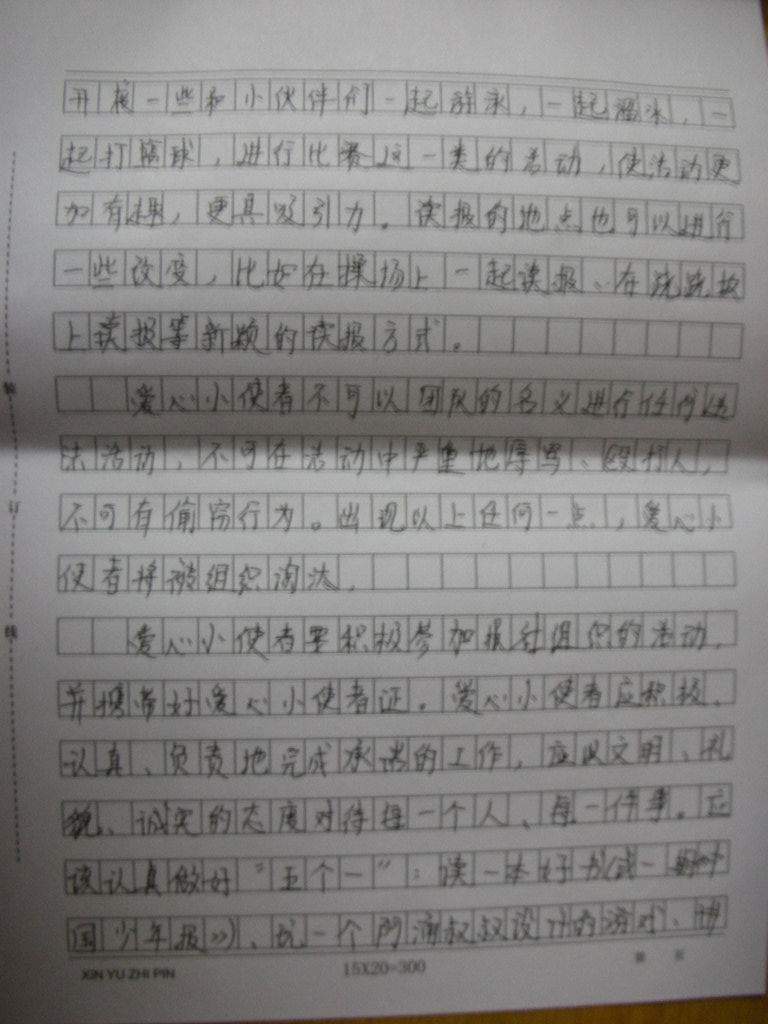 开展一些和小伙伴们一起游泳，一起溜冰，一
起打篮球，进行比赛这一类的活动，使活动更
加有趣，更具吸引力。读报的地点也可以进行
一些改变，比如在操场上一起读报、在跷跷板
上读报等新颖的读报方式。
爱心小使者不可以团队的名义进行任何违
法活动，不可在活动中严重地辱骂、殴打人，
不可有偷窃行为。出现以上任何一点，爱心小
使者将被组织淘汰。
爱心小使者要积极参加报社组织的活动，
并携带好爱心小使者证。爱心小使者应积极、
认真、负责地完成承诺的工作，应以文明、礼
貌、诚实的态度对待每一个人、每一件事。应
该认真做好“五个一”：读一本好书(或一期中
国少年报》)、玩一个阿海叔叔设计的游戏、
装
订
线
XIN YU ZHI PIN
15X20=300
第 页